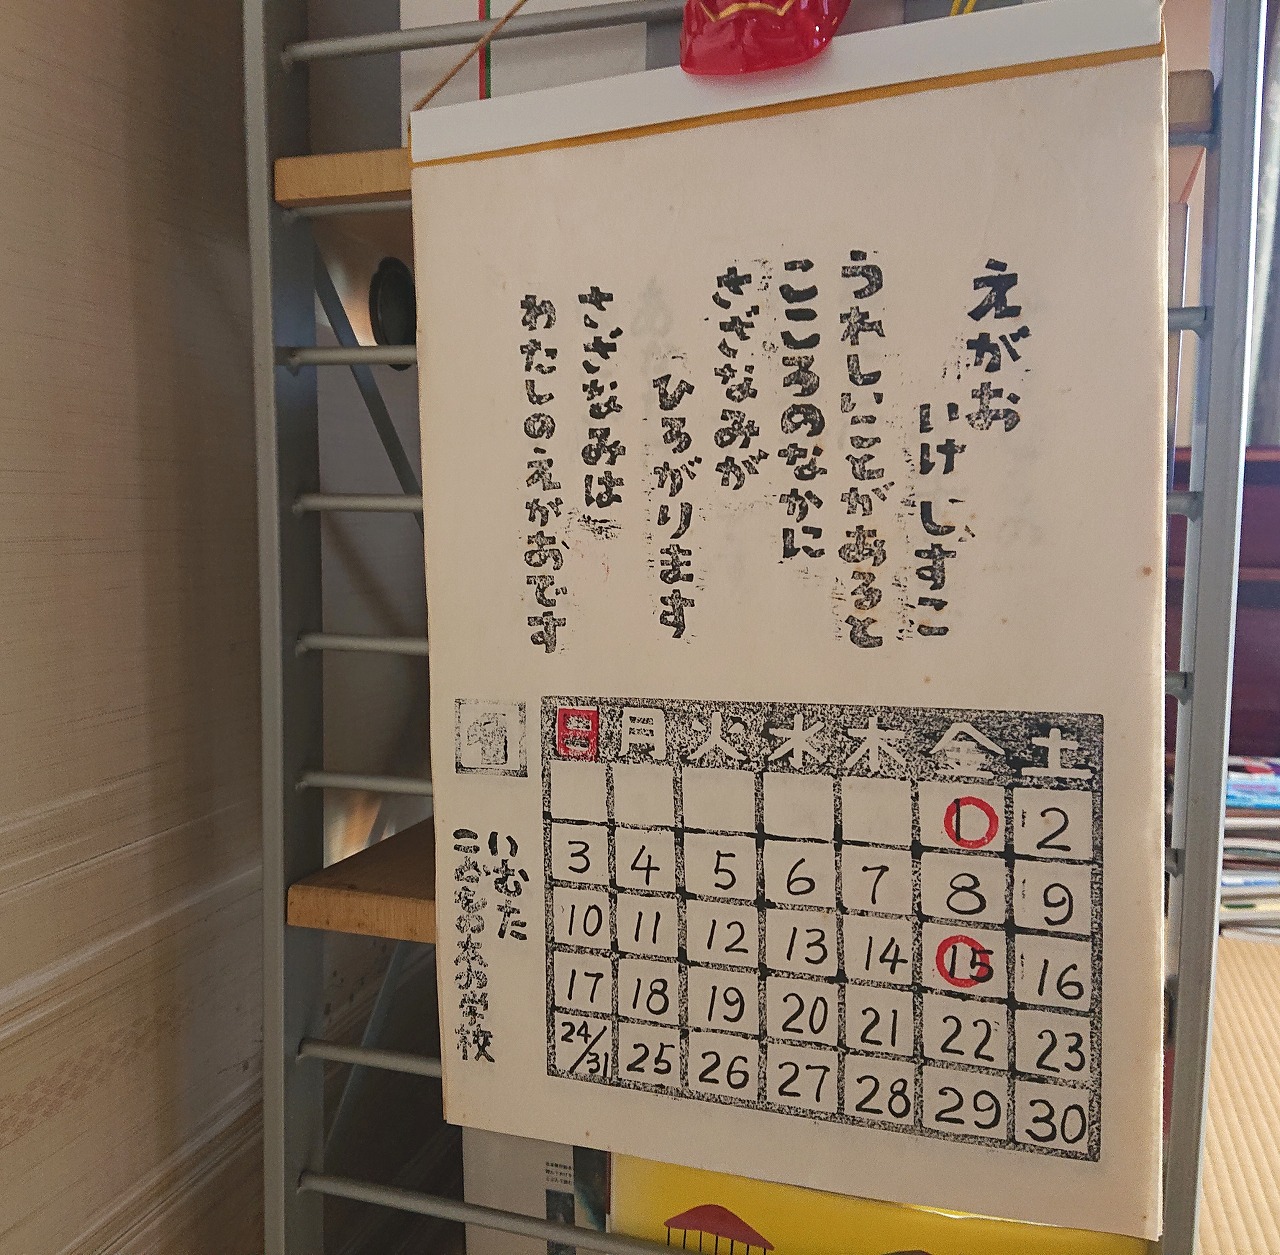 えがお
いけ しずこ
うれしいことがあると
こころのなかに
さざなみが
ひろがります
さざなみは
わたしのえがおです
日 月 火 水 木 金 土
1 2
3 4 5 6 7 8 9
10 11 12 13 14 15 16
17 18 19 20 21 22 23
24/31 25 26 27 28 29 30
いむた
こどもの本の学校